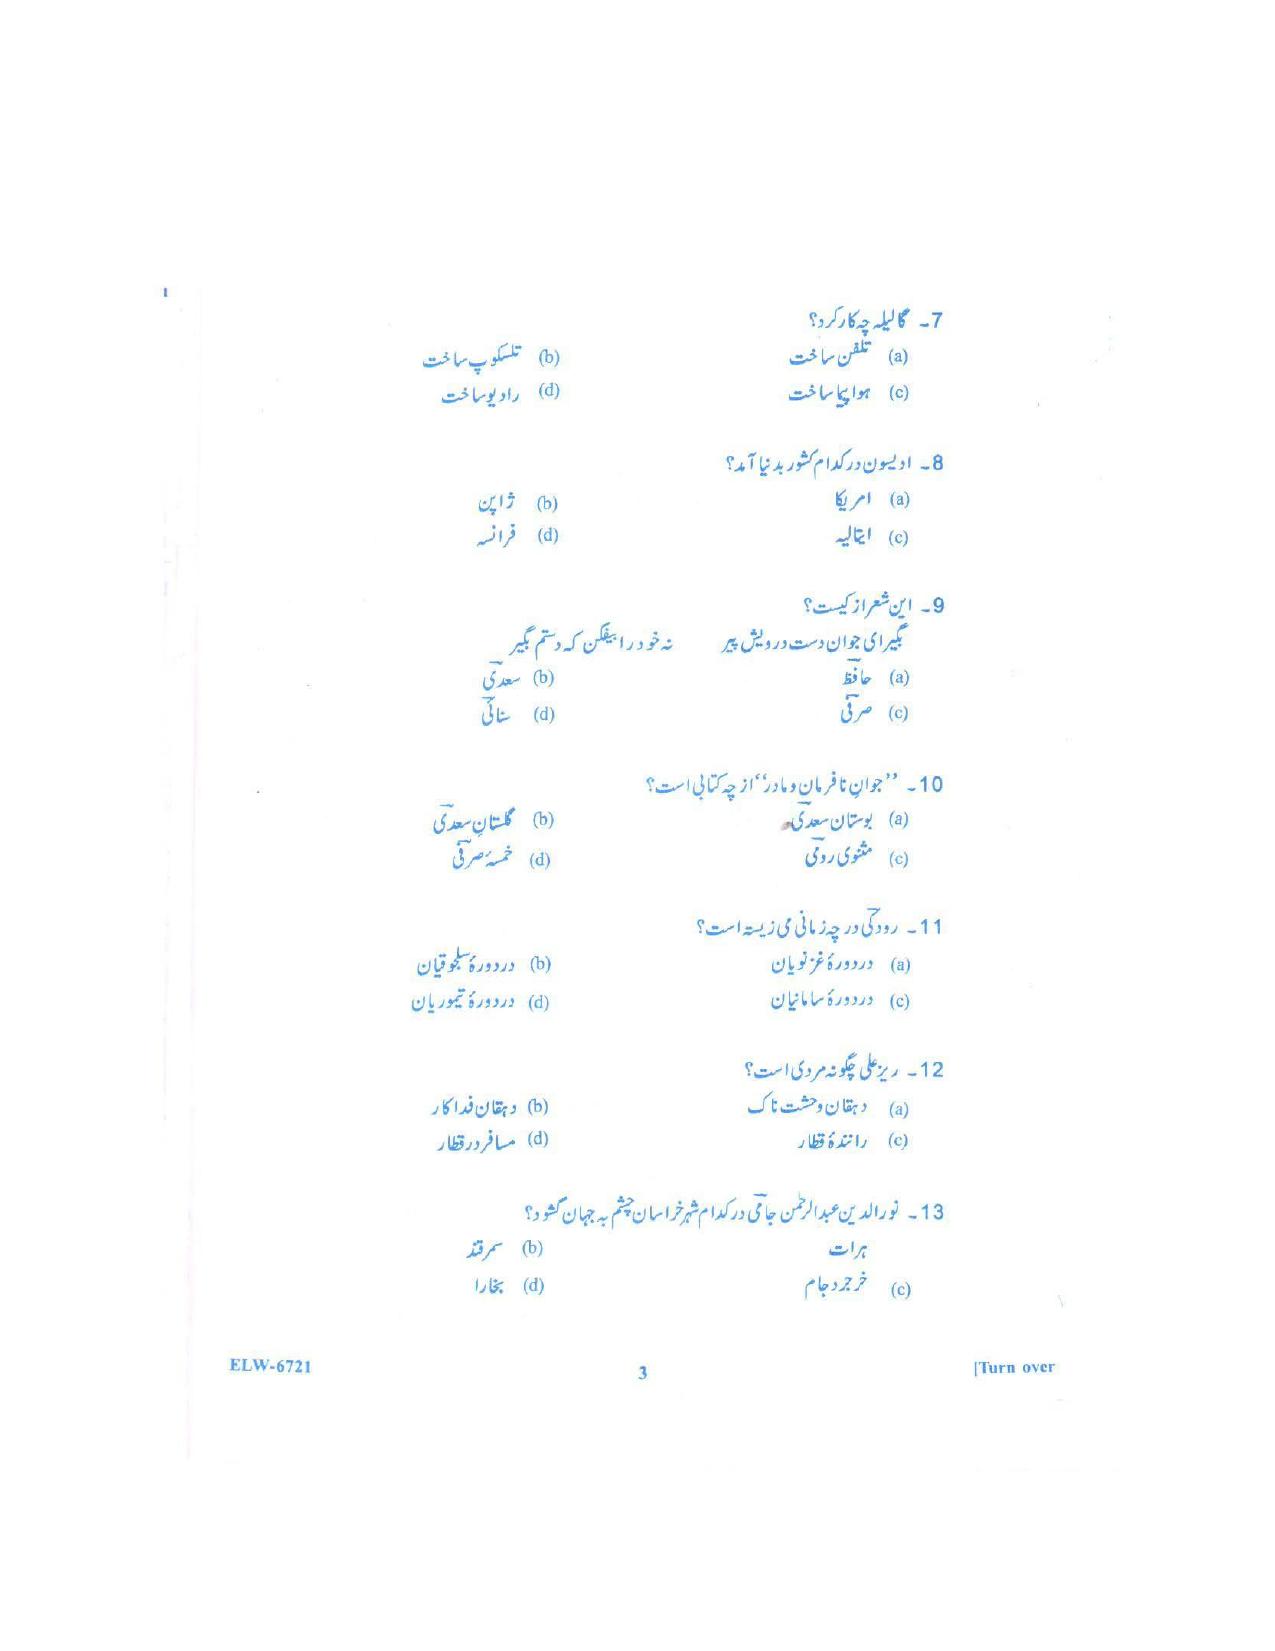 7- گالیله چه کار کرد؟
(a) تلفن ساخت (b) تلسکوپ ساخت
(c) هواپیما ساخت (d) رادیو ساخت
8- ادیسون در کدام کشور بدنیا آمد؟
(a) امریکا (b) ژاپن
(c) ایتالیه (d) فرانسه
9- این شعر از کیست؟
بگیر ای جوان دست درویش پیر نه خود را بیفگن که دستم بگیر
(a) حافظؔ (b) سعدیؔ
(c) صرفیؔ (d) سنائیؔ
10- ’’جوانِ نافرمان و مادر‘‘ از چه کتابی است؟
(a) بوستان سعدیؔ (b) گلستانِ سعدیؔ
(c) مثنوی رومیؔ (d) خمسۂ صرفیؔ
11- رودکیؔ در چه زمانی می زیسته است؟
(a) در دورۂ غزنویان (b) در دورۂ سلجوقیان
(c) در دورۂ سامانیان (d) در دورۂ تیموریان
12- ریز علی چگونه مردی است؟
(a) دہقان وحشت ناک (b) دہقان فداکار
(c) رانندۂ قطار (d) مسافر در قطار
13- نورالدین عبدالرحمٰن جامیؔ در کدام شہر خراسان چشم به جہان گشود؟
ہرات (b) سمرقند
(c) خرجرد جام (d) بخارا
ELW-6721 3 [Turn over